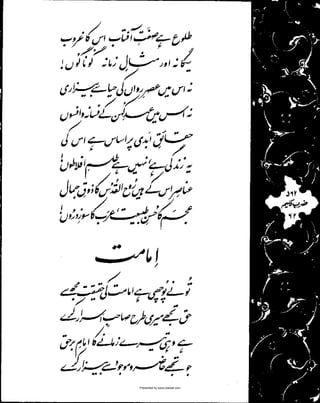 طلوع ہے صفتِ آفتاب اس کا غروب
یگانہ اور مثالِ زمانہ گوناگوں!
نہ اس میں عصرِ رواں کی حیا سے بیزاری
نہ اس میں عہدِ کہن کے فسانہ و افسوں
حقائقِ ابدی پر اساس ہے اس کی
یہ زندگی ہے، نہیں ہے طلسمِ افلاطوں!
عناصر اس کے ہیں روح القدس کا ذوقِ جمال
عجم کا حسنِ طبیعت، عرب کا سوزِ دروں!
امامت
تُو نے پوچھی ہے امامت کی حقیقت مجھ سے
حق تجھے میری طرح صاحبِ اسرار کرے
ہے وہی تیرے زمانے کا امامِ برحق
جو تجھے حاضر و موجود سے بیزار کرے
ضربِ کلیم
۶۲
Presented by www.iqbalcyberlibrary.net